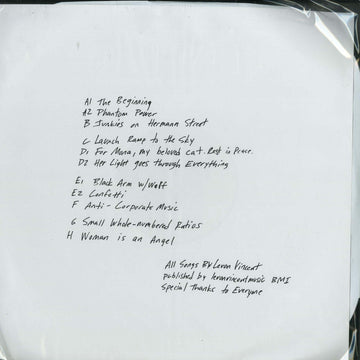 A1 The Beginning
A2 Phantom Power
B Junkies on Hermann Street
C Launch Ramp to the Sky
D1 For Mona, my beloved cat. Rest in Peace.
D2 Her Light goes through Everything
E1 Black Arm w/Wolf
E2 Confetti
F Anti-Corporate Music
G Small Whole-numbered Ratios
H Woman is an Angel
All Songs By Levon Vincent
published by levonvincentmusic BMI
Special Thanks to Everyone